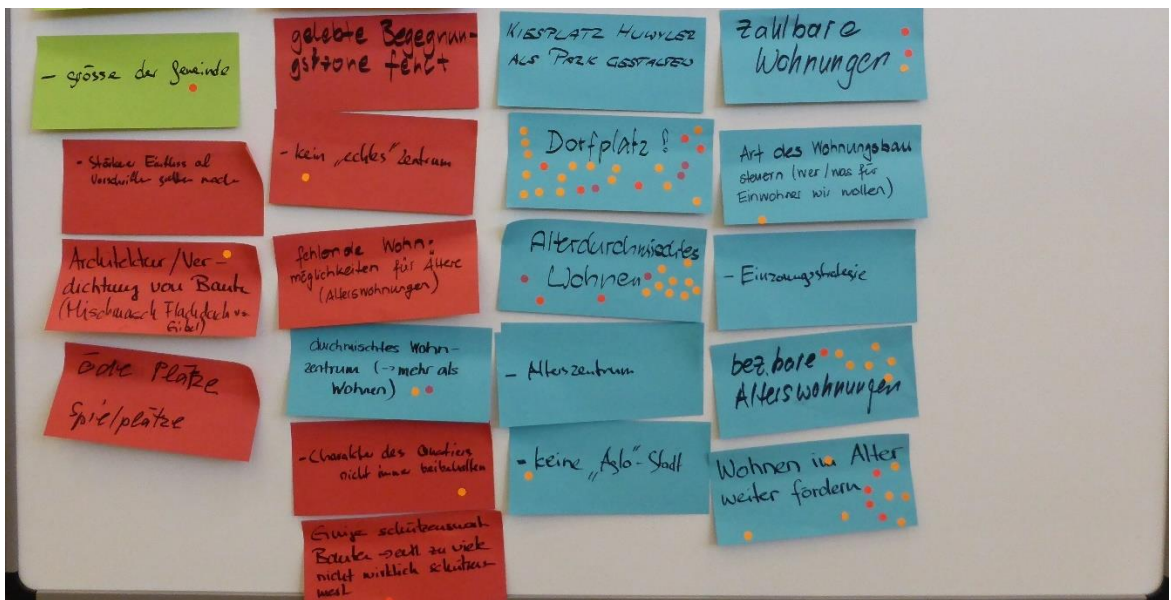 - grösse der Gemeinde
- Stärker Einfluss al
Vorschriften geben nach
Architektur/Ver-
dichtung von Baute
(Mischmasch Flachdach vs
Gibel)
öde Plätze
Spielplätze
gelebte Begegnun-
gszone fehlt
- kein „echtes" Zentrum
fehlende Wohn-
möglichkeiten für Ältere
(Alterswohnungen)
durchmischtes Wohn-
zentrum (→ mehr als
Wohnen)
- Charakter des Quartiers
nicht immer beibehalten
Einige schützenswert
Bauten → all zu viele
nicht wirklich schützens
wert
KIESPLATZ HUWYLER
ALS PARK GESTALTEN
Dorfplatz!
Alterdurchmischtes
Wohnen
- Alterszentrum
- keine „Aglo"-Stadt
zahlbare
Wohnungen
Art des Wohnungsbau
steuern (wer/was für
Einwohner wir wollen)
- Einzonungsstrategie
bez.bare
Alterswohnungen
Wohnen im Alter
weiter fördern